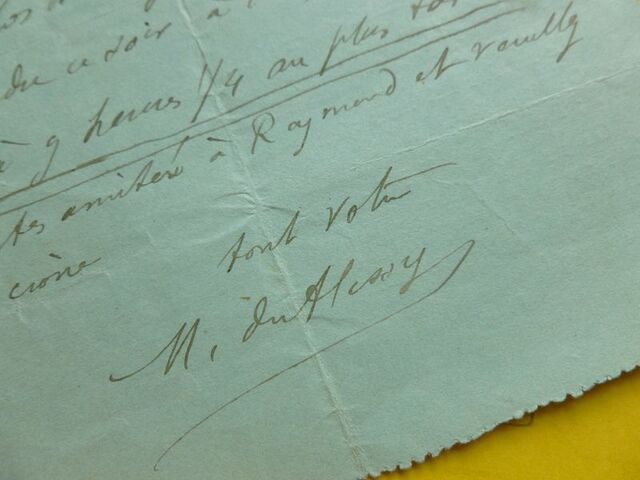 du ce soir à
à 9 heures 1/4 au plus tot
tes amitiés à Raymond et veuillez
croire
tout votre
M. du Plessy